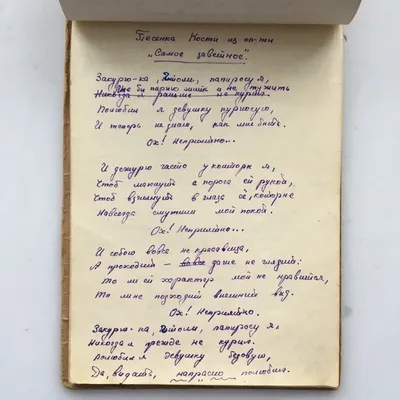 Песенка Кости из оп-ты
"Самое заветное".
Закурю-ка, что ли, папиросу я,
Мне бы парню жить и не тужить
Никогда я раньше не курил.
Полюбил я девушку курносую,
И теперь не знаю, как мне быть.
Ох! Неприятно...
И дежурю часто у конторы я,
Чтоб махнуть с порога ей рукой,
Чтоб взглянуть в глаза её, которые
Навсегда смутили мой покой.
Ох! Неприятно...
И собою вовсе не красавица,
А проходит – вовсе даже не глядит:
То ли ей характер мой не нравится,
То ли не подходит внешний вид.
Ох! Неприятно.
Закурю-ка, что ли, папиросу я,
Никогда я прежде не курил.
Полюбил я девушку
Да, видать, напрасно полюбил.